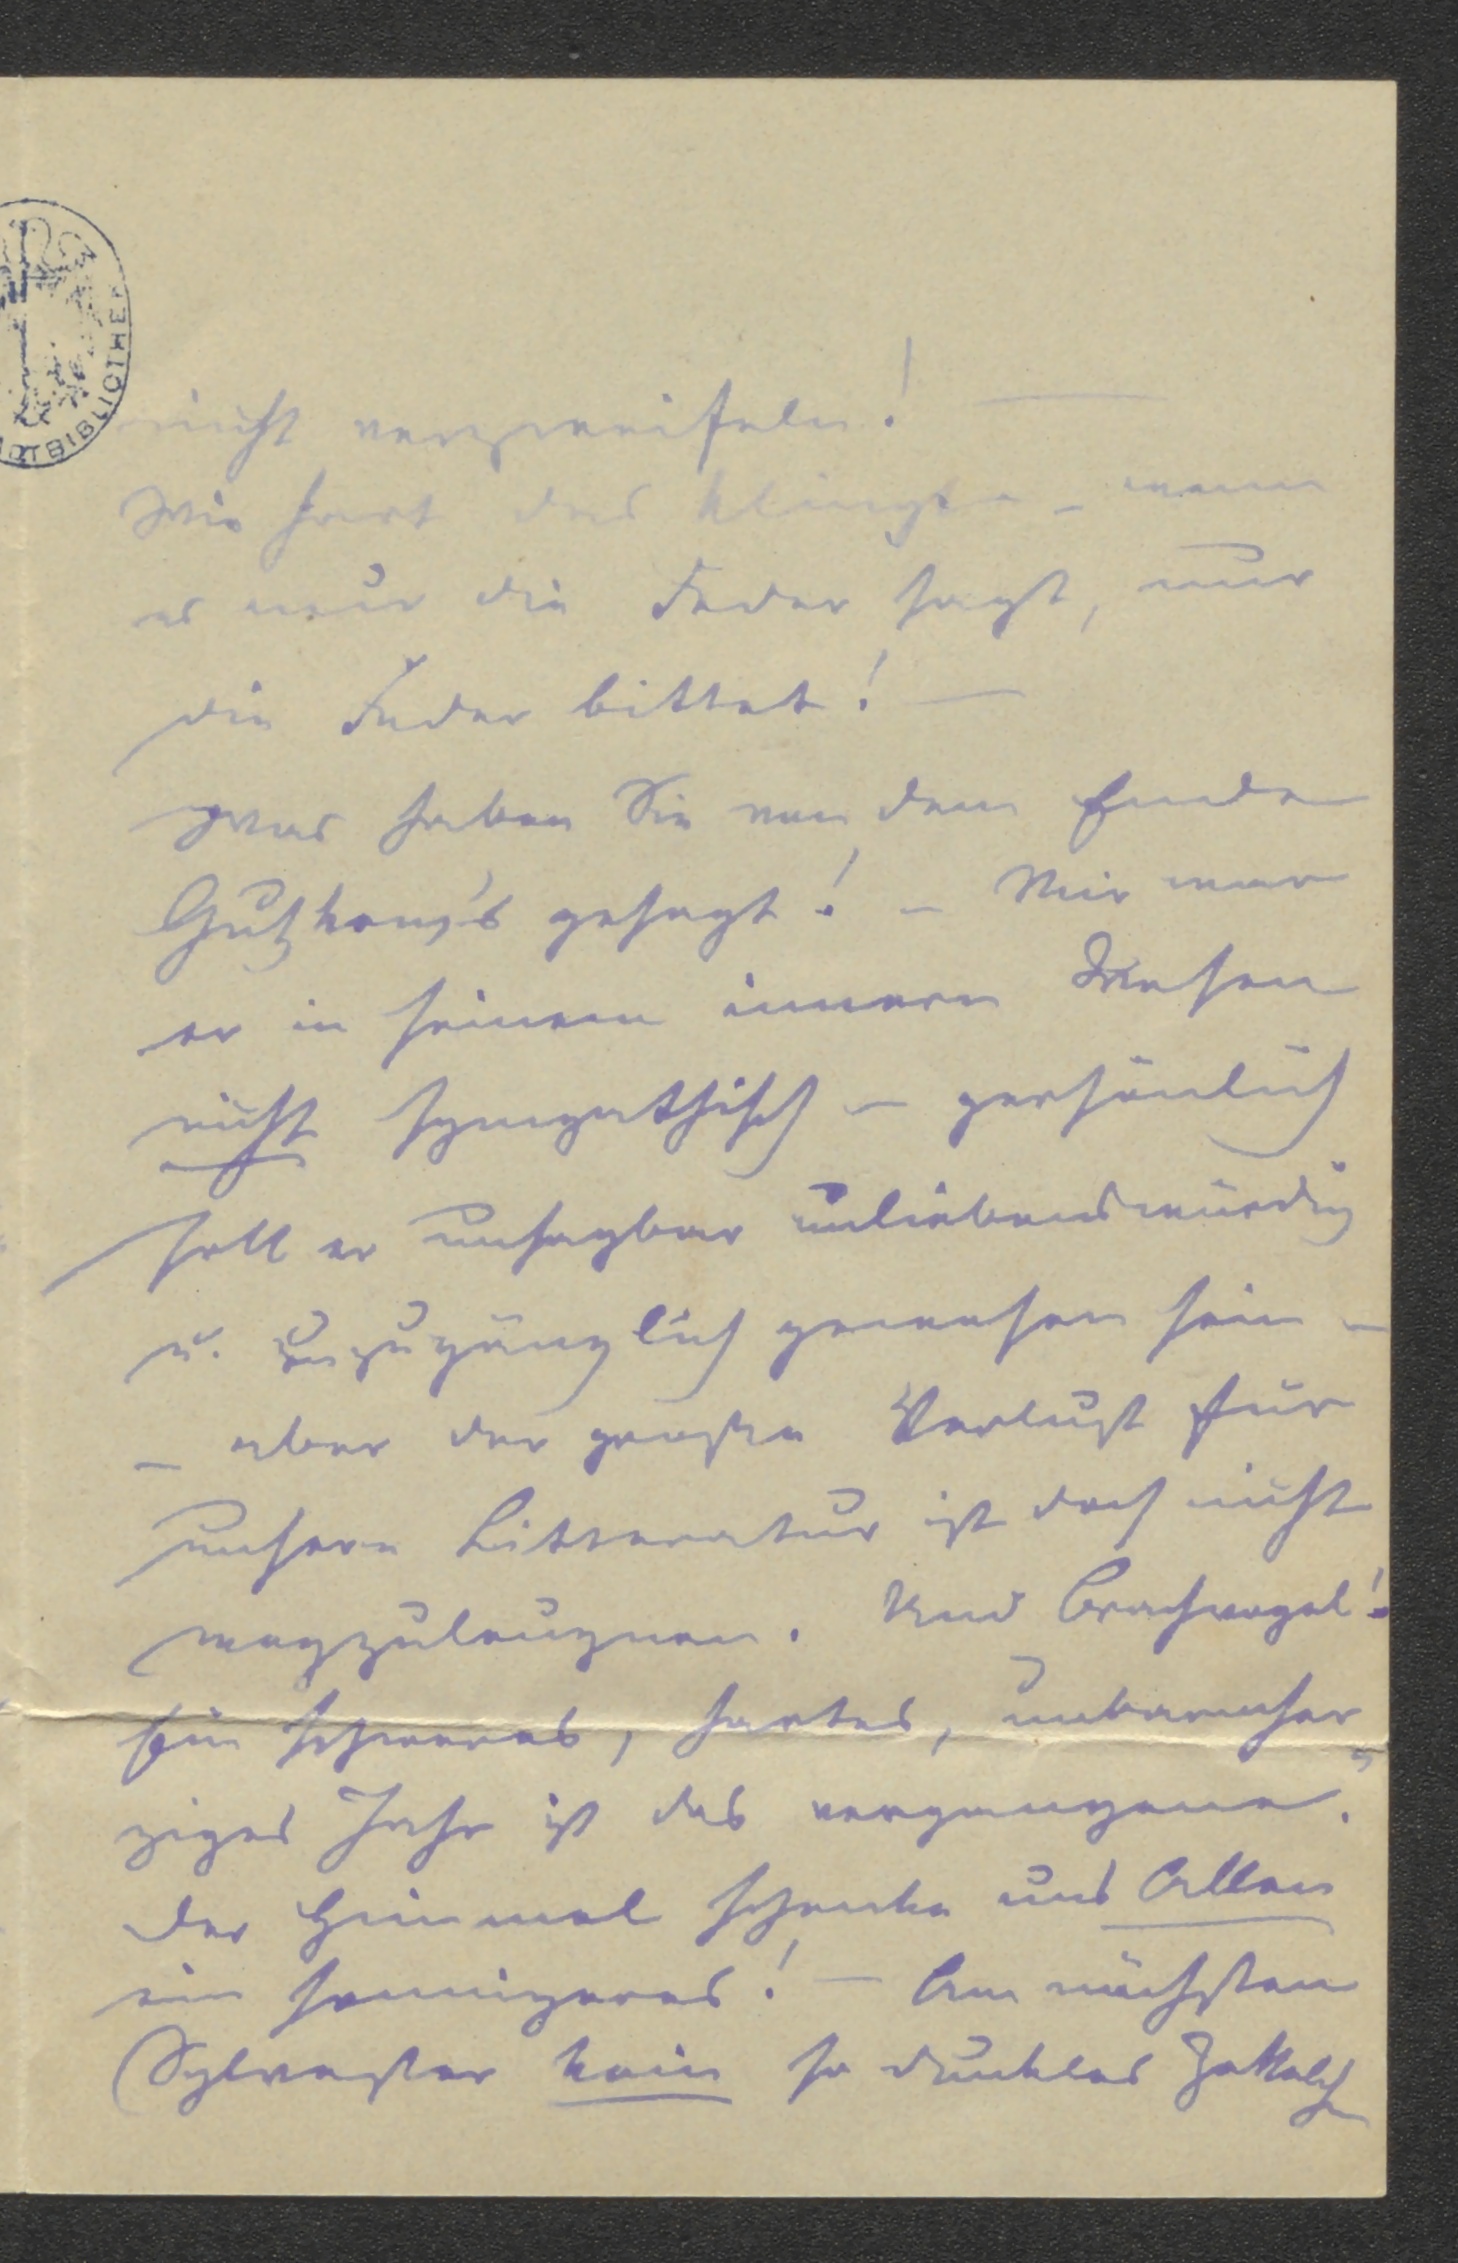 nicht verzweifeln! —
Wie hart das klingt – wenn
es nur die Feder sagt, nur
die Feder bittet! —
Was haben Sie von dem Ende
Gutzkow's gesagt! – Mir war
er in seinem innern Wesen
nicht sympathisch – persönlich
soll er unsagbar unliebenswürdig
u. unzugänglich gewesen sein –
– aber der große Verlust für
unsere Litteratur ist doch nicht
wegzuleugnen. Und Brachvogel!
Ein schweres, hartes, unbarmher
ziges Jahr ist das vergangene.
Der Himmel schenke uns Allen
ein sonnigeres! – Am nächsten
Sylvester kein so dunkles
STADTBIBLIOTHEK